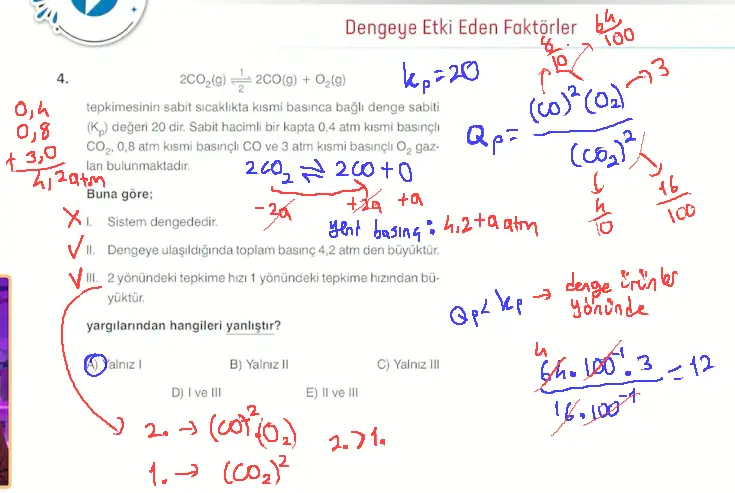 Dengeye Etki Eden Faktörler
4.
2CO₂(g) ⇌ 2CO(g) + O₂(g)
1
2
tepkimesinin sabit sıcaklıkta kısmi basınca bağlı denge sabiti
(Kₚ) değeri 20 dir. Sabit hacimli bir kapta 0,4 atm kısmi basınçlı
CO₂, 0,8 atm kısmi basınçlı CO ve 3 atm kısmi basınçlı O₂ gaz-
ları bulunmaktadır.
Buna göre;
I. Sistem dengededir.
II. Dengeye ulaşıldığında toplam basınç 4,2 atm den büyüktür.
III. 2 yönündeki tepkime hızı 1 yönündeki tepkime hızından bü-
yüktür.
yargılarından hangileri yanlıştır?
A) Yalnız I B) Yalnız II C) Yalnız III
D) I ve III E) II ve III
0,4
0,8
+ 3,0
4,2atm
kp=20
2CO₂ ⇌ 2CO+O
-2a +2a +a
yeni basınç: 4,2+a atm
Qp= (CO)²(O₂) / (CO₂)²
8/10 . 64/100
3
4/10 16/100
Qp<kp → denge ürünler
yönünde
64.100⁻¹.3 / 16.100⁻¹ = 12
4
2. → (CO)².(O₂) 2.>1.
1. → (CO₂)²